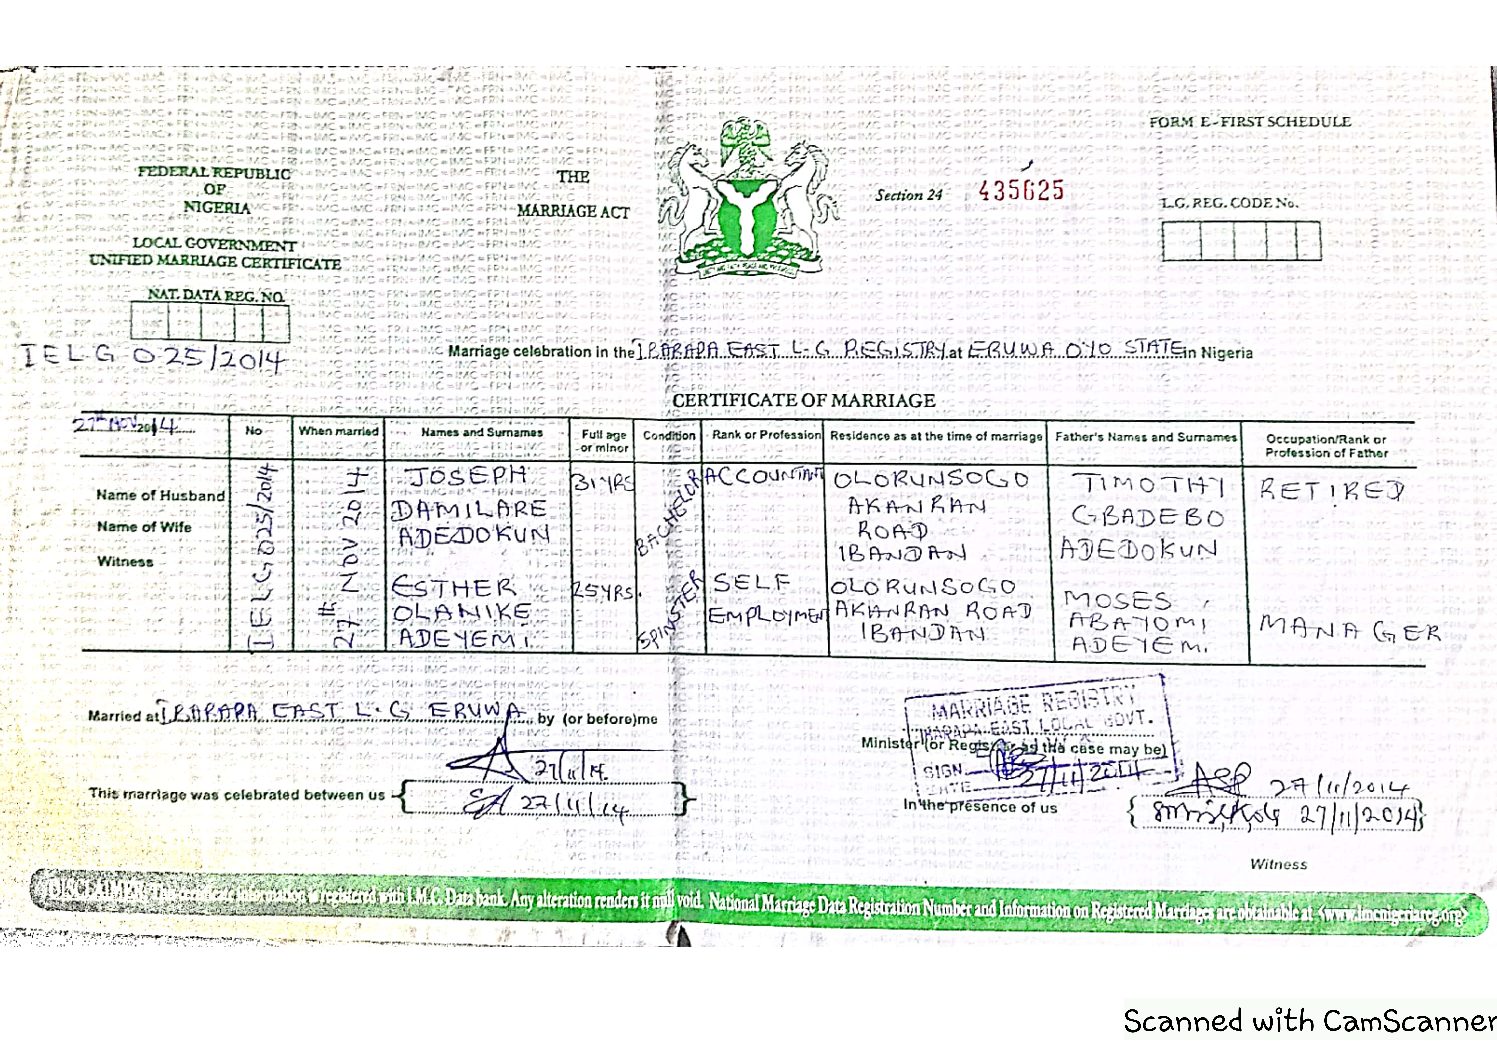 FORM E-FIRST SCHEDULE
FEDERAL REPUBLIC
OF
NIGERIA
THE
MARRIAGE ACT
Section 24 435625
L.G. REG. CODE No.
LOCAL GOVERNMENT
UNIFIED MARRIAGE CERTIFICATE
NAT. DATA REG. NO.
IELG 025/2014
Marriage celebration in the IBARAPA EAST L.G REGISTRY at ERUWA OYO STATE in Nigeria
CERTIFICATE OF MARRIAGE
27th NOV 2014
No
When married
Names and Surnames
Full age or minor
Condition
Rank or Profession
Residence as at the time of marriage
Father's Names and Surnames
Occupation/Rank or Profession of Father
Name of Husband
Name of Wife
Witness
IELG 025/2014
27th NOV 2014
JOSEPH
DAMILARE
ADEDOKUN
31YRS
BACHELOR
ACCOUNTANT
OLORUNSOGO
AKANRAN
ROAD
IBANDAN
TIMOTHY
GBADEBO
ADEDOKUN
RETIRED
ESTHER
OLANIKE
ADEYEMI
25YRS.
SPINSTER
SELF
EMPLOYMENT
OLORUNSOGO
AKANRAN ROAD
IBANDAN
MOSES
ABAYOMI
ADEYEMI
MANAGER
Married at IBARAPA EAST L.G ERUWA by (or before) me
MARRIAGE REGISTRY
IBARAPA EAST LOCAL GOVT.
Minister (or Registrar as the case may be)
SIGN
DATE 27/11/2014
27/11/14.
This marriage was celebrated between us
27/11/14
In the presence of us
27/11/2014
27/11/2014
Witness
DISCLAIMER: This certificate information is registered with I.M.C. Data bank. Any alteration renders it null void. National Marriage Data Registration Number and Information on Registered Marriages are obtainable at <www.imcnigeriareg.org>
Scanned with CamScanner